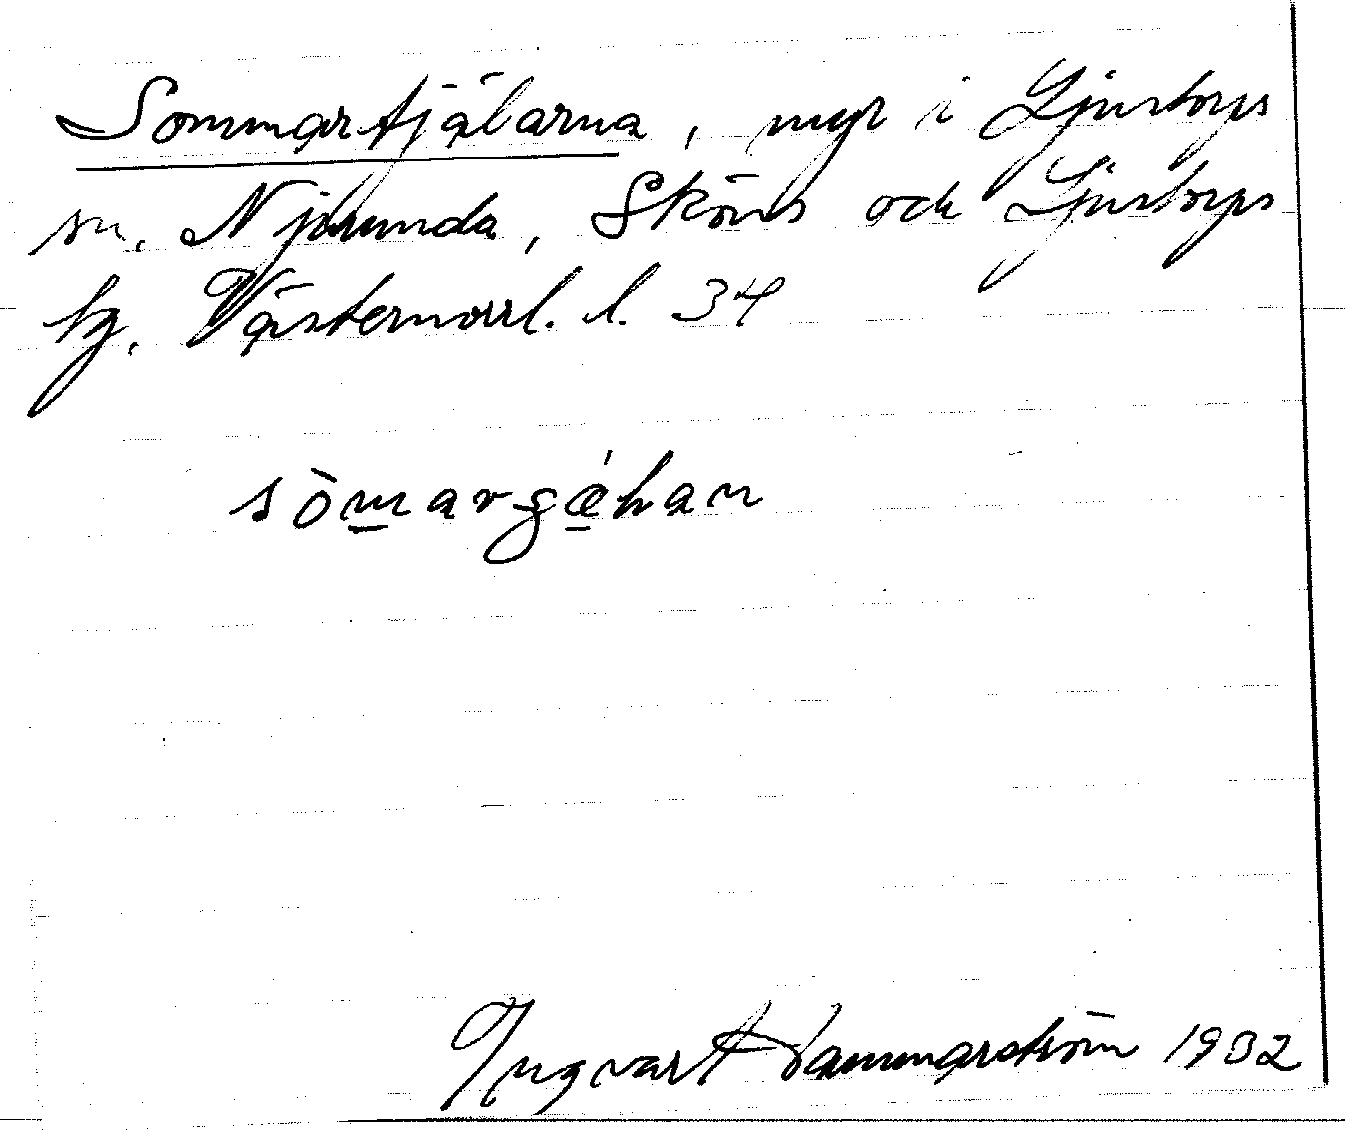 Sommartjälarna, myr i Ljustorps
sn. Njurunda, Sköns och Ljustorps
tg. Västernorrl. l. 34
sòmargǽhan
Ingvart Hammarström 1932